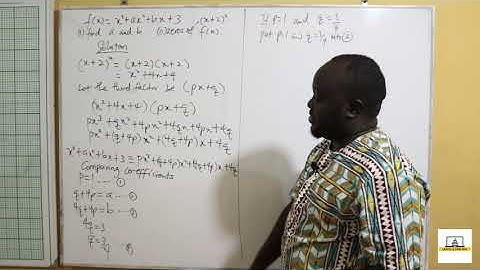 f(x) = x³+ax²+bx+3 (x+2)²
(i) find a and b (ii) zeros of f(x).
Solution
(x+2)² = (x+2)(x+2)
= x²+4x+4
Let the third factor be (px+q)
(x²+4x+4)(px+q)
px³+qx²+4px²+4qx+4px+4q
px³+(q+4p)x²+(4q+4p)x+4q
x³+ax²+bx+3 = px³+(q+4p)x²+(4q+4p)x+4q
Comparing co-efficients
p=1 ... ①
q+4p=a ... ②
4q+4p=b ... ③
4q=3
q=3/4
If p=1 and q=3/4
put p=1 and q=3/4 into (2)